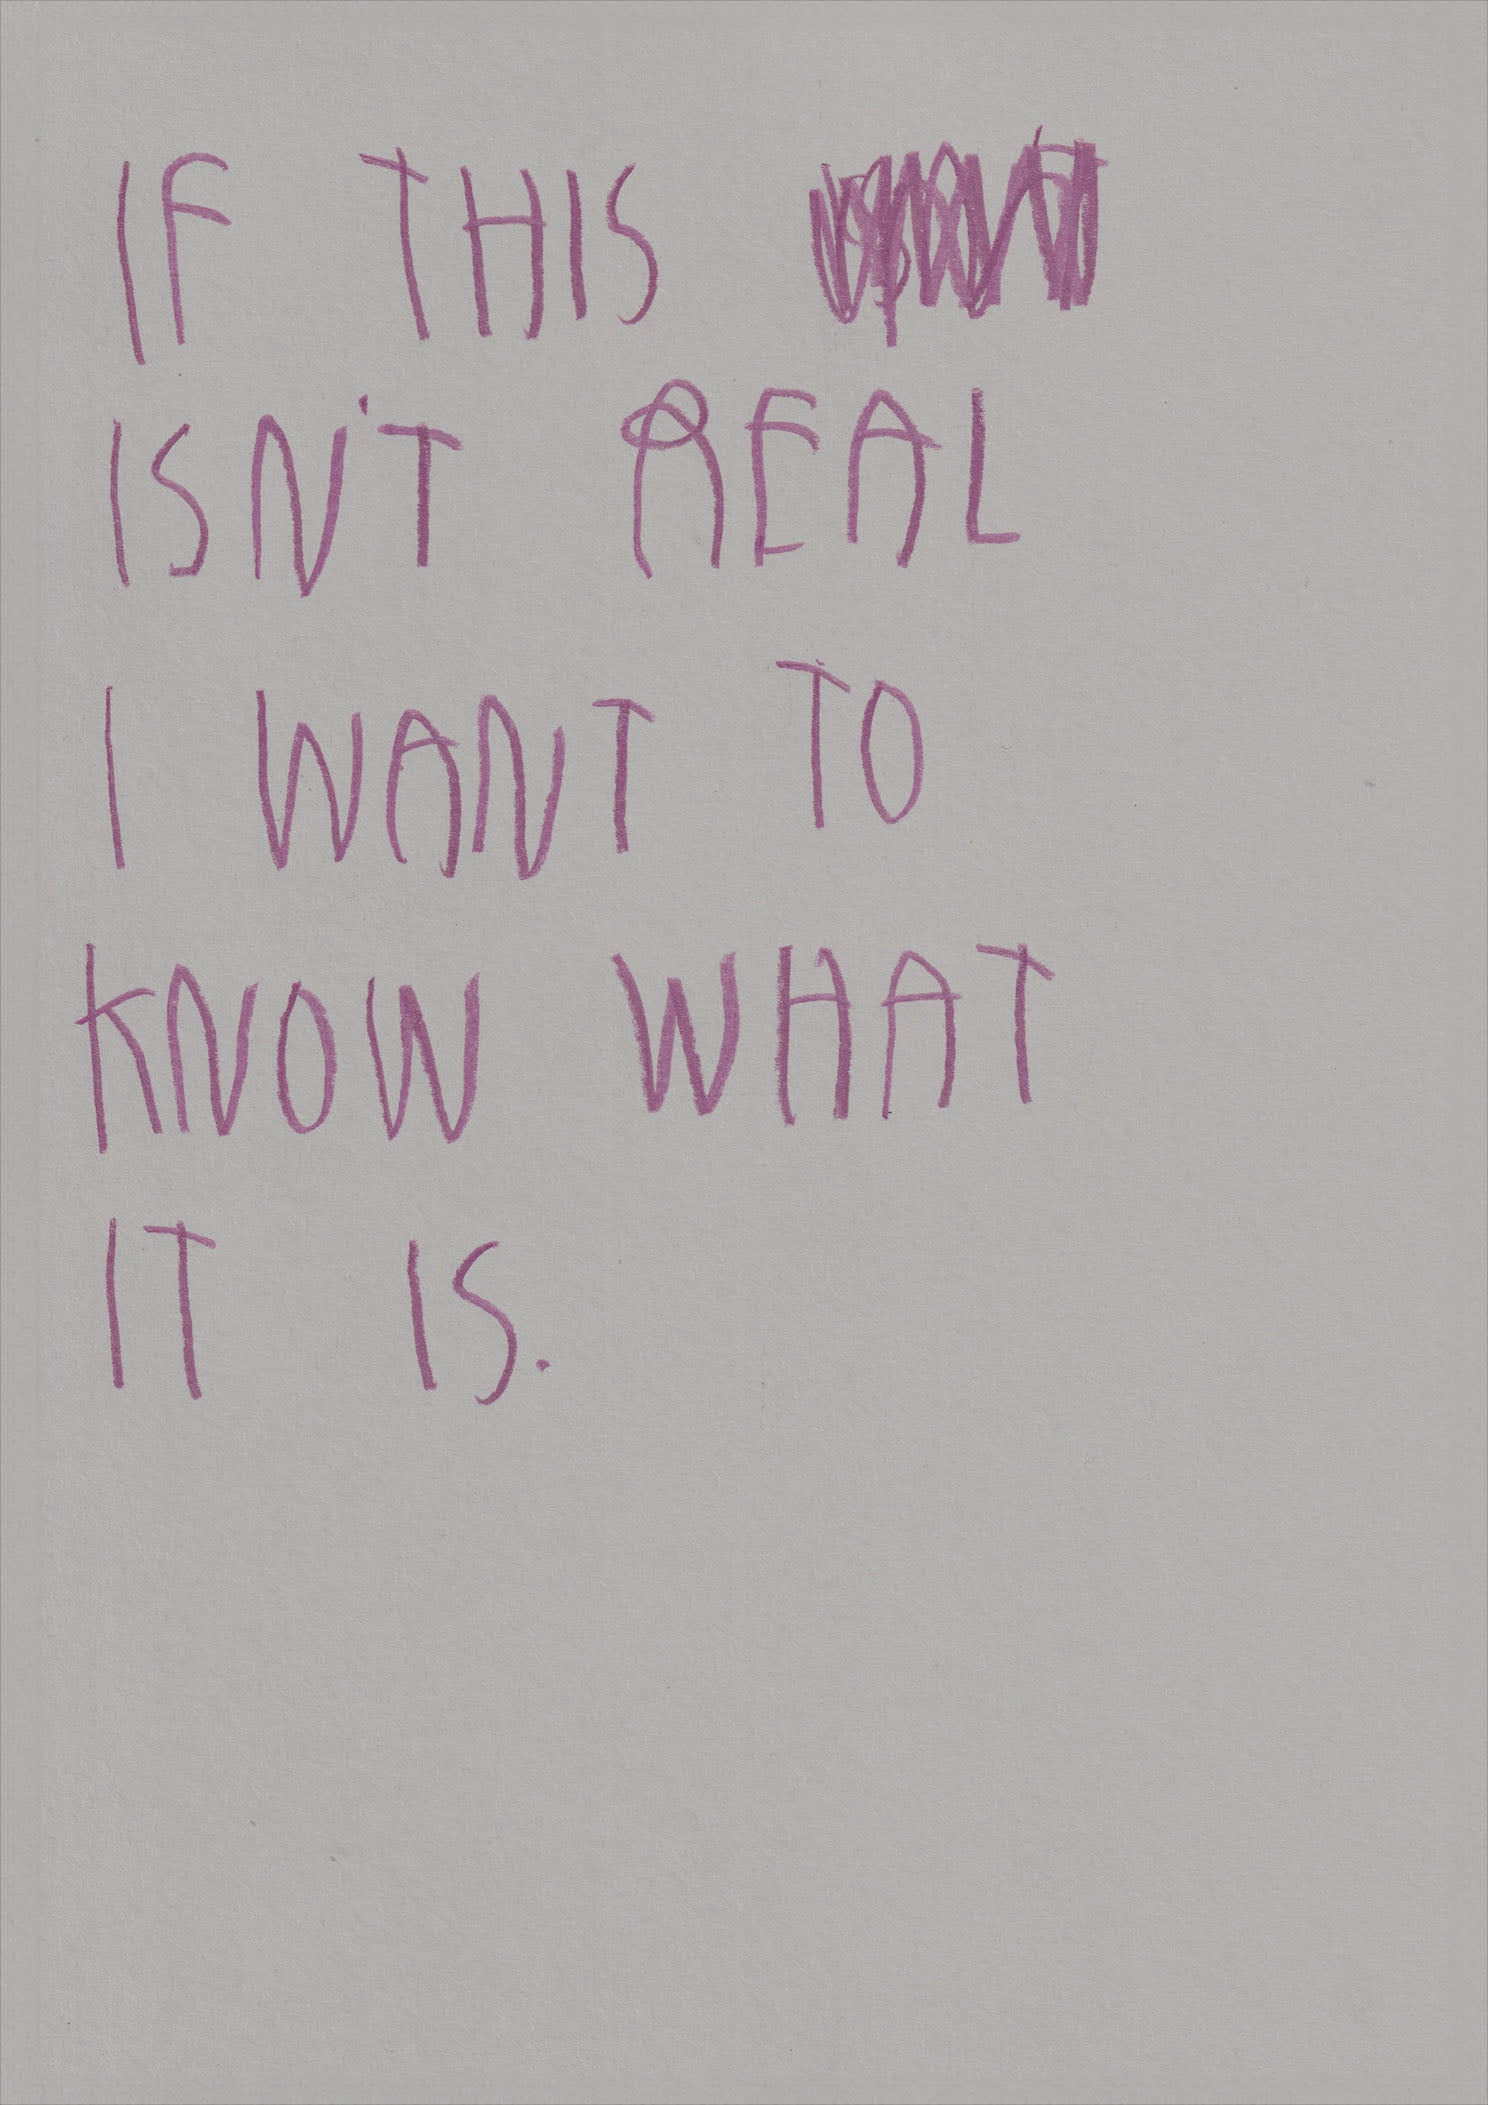 IF THIS
ISN'T REAL
I WANT TO
KNOW WHAT
IT IS.